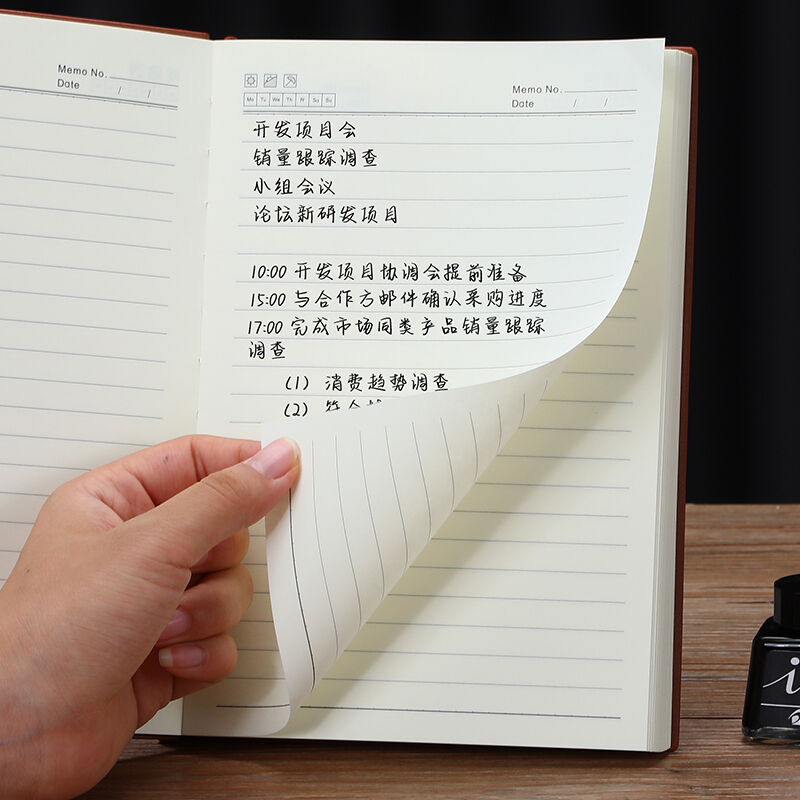 Memo No.
Date / /
Memo No.
Mo Tu We Th Fr Sa Su
Date / /
开发项目会
销量跟踪调查
小组会议
论坛新研发项目
10:00 开发项目协调会提前准备
15:00 与合作方邮件确认采购进度
17:00 完成市场同类产品销量跟踪
调查
(1) 消费趋势调查
(2)